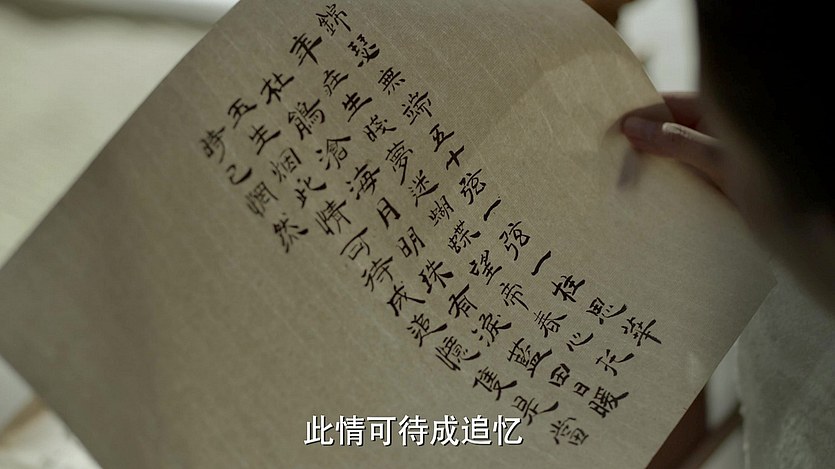 錦瑟無端五十弦一弦一柱思華
年庄生晓夢迷蝴蝶望帝春心托
杜鵑滄海月明珠有淚藍田日暖
玉生烟此情可待成追憶隻是當
時已惘然
此情可待成追忆